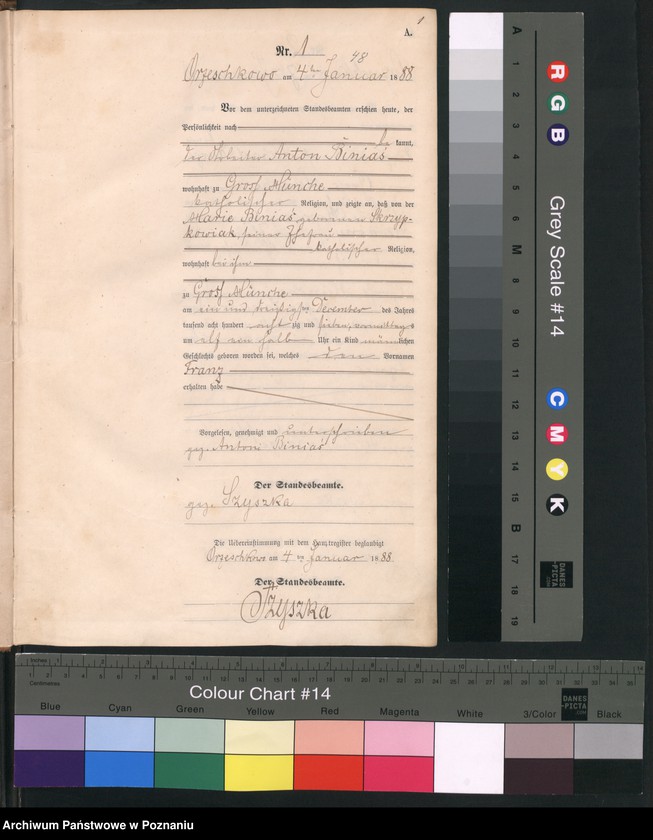 A.
1
Nr. 1
48
Orzeschkowo am 4ten Januar 1888
Vor dem unterzeichneten Standesbeamten erschien heute, der
Persönlichkeit nach
be kannt,
der Arbeiter Anton Biniaś
wohnhaft zu Groß Münche
katholischer Religion, und zeigte an, daß von der
Marie Biniaś geborenen Skrzyp-
kowiak, seiner Ehefrau
katholischer Religion,
wohnhaft bei ihm
zu Groß Münche
am ein und dreißigsten December des Jahres
tausend acht hundert acht zig und sieben, vormittags
um elf ein halb Uhr ein Kind männlichen
Geschlechts geboren worden sei, welches den Vornamen
Franz
erhalten habe
Vorgelesen, genehmigt und unterschrieben
gez. Antoni Biniaś
Der Standesbeamte.
gez. Szyszka
Die Uebereinstimmung mit dem Hauptregister beglaubigt
Orzeschkowo am 4ten Januar 1888
Der Standesbeamte.
Szyszka
A
1
2
3
4
5
6
M
8
9
10
11
12
13
14
15
B
17
18
19
R
G
B
Grey Scale #14
C
M
Y
K
DANES
-PICTA
.COM
Inches
Centimetres
Colour Chart #14
Blue
Cyan
Green
Yellow
Red
Magenta
White
3/Color
Black
DANES
-PICTA
.COM
Archiwum Państwowe w Poznaniu